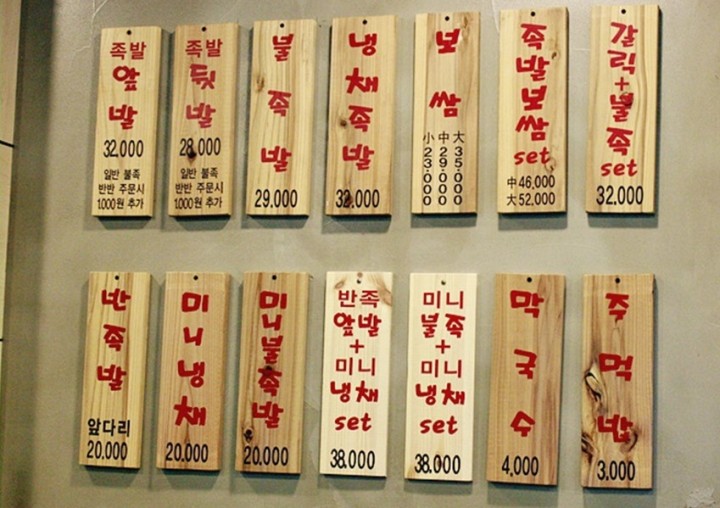 족발
앞
발
32.000
일반 불족
반반 주문시
1.000원 추가
족발
뒷
발
28.000
일반 불족
반반 주문시
1.000원 추가
불
족
발
29.000
냉
채
족
발
32.000
보
쌈
小 中 大
23.000 29.000 35.000
족
발
보
쌈
set
中 46,000
大 52.000
갈
릭
+
불
족
set
32.000
반
족
발
앞다리
20.000
미
니
냉
채
20.000
미
니
불
족
발
20.000
반족
앞발
+
미니
냉채
set
38.000
미니
불족
+
미니
냉채
set
38.000
막
국
수
4.000
주
먹
밥
3.000